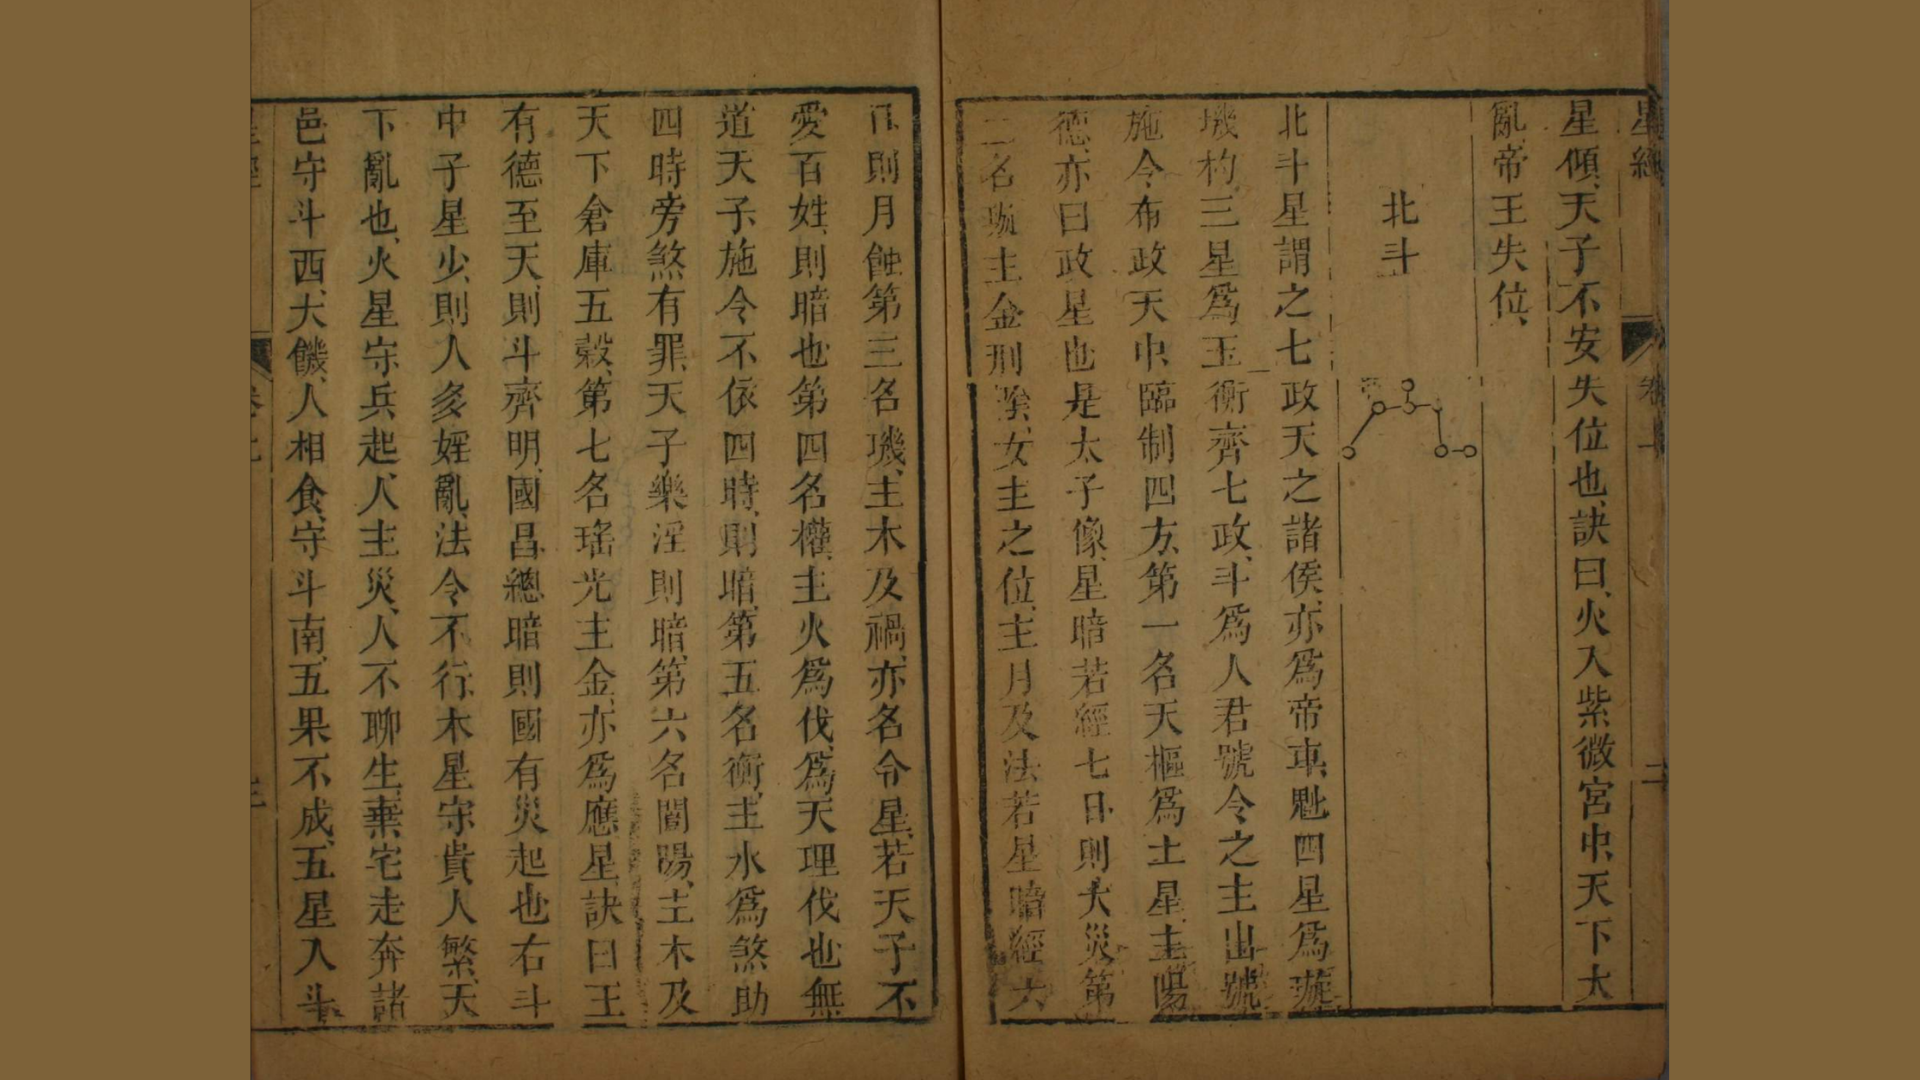 星經
卷上
二
星傾、天子不安失位也、訣曰、火入紫微宮中、天下大
亂、帝王失位、
北斗
北斗星謂之七政天之諸侯、亦爲帝車、魁四星爲璇
璣、杓三星爲玉衡齊七政、斗爲人君號令之主出號
施令、布政天中、臨制四方、第一名天樞爲土星、主陽
德、亦曰政星也是太子像、星暗若經七日則大災、第
二名璇主金刑陰、女主之位、主月及法若星暗經六
日、則月蝕第三名璣、主木及禍、亦名令星、若天子不
愛百姓、則暗也第四名權、主火爲伐、爲天理伐也無
道天子、施令不依四時、則暗、第五名衡、主水爲煞助
四時旁煞有罪、天子樂淫則暗、第六名闓陽、主木及
天下倉庫五穀、第七名瑤光主金、亦爲應、星訣曰王
有德至天、則斗齊明、國昌、總暗則國有災起也右斗
中子星少、則人多婬亂、法令不行、木星守、貴人繁、天
下亂也、火星守兵起、人主災、人不聊生、棄宅走奔諸
邑守斗西、大饑、人相食、守斗南、五果不成、五星入斗